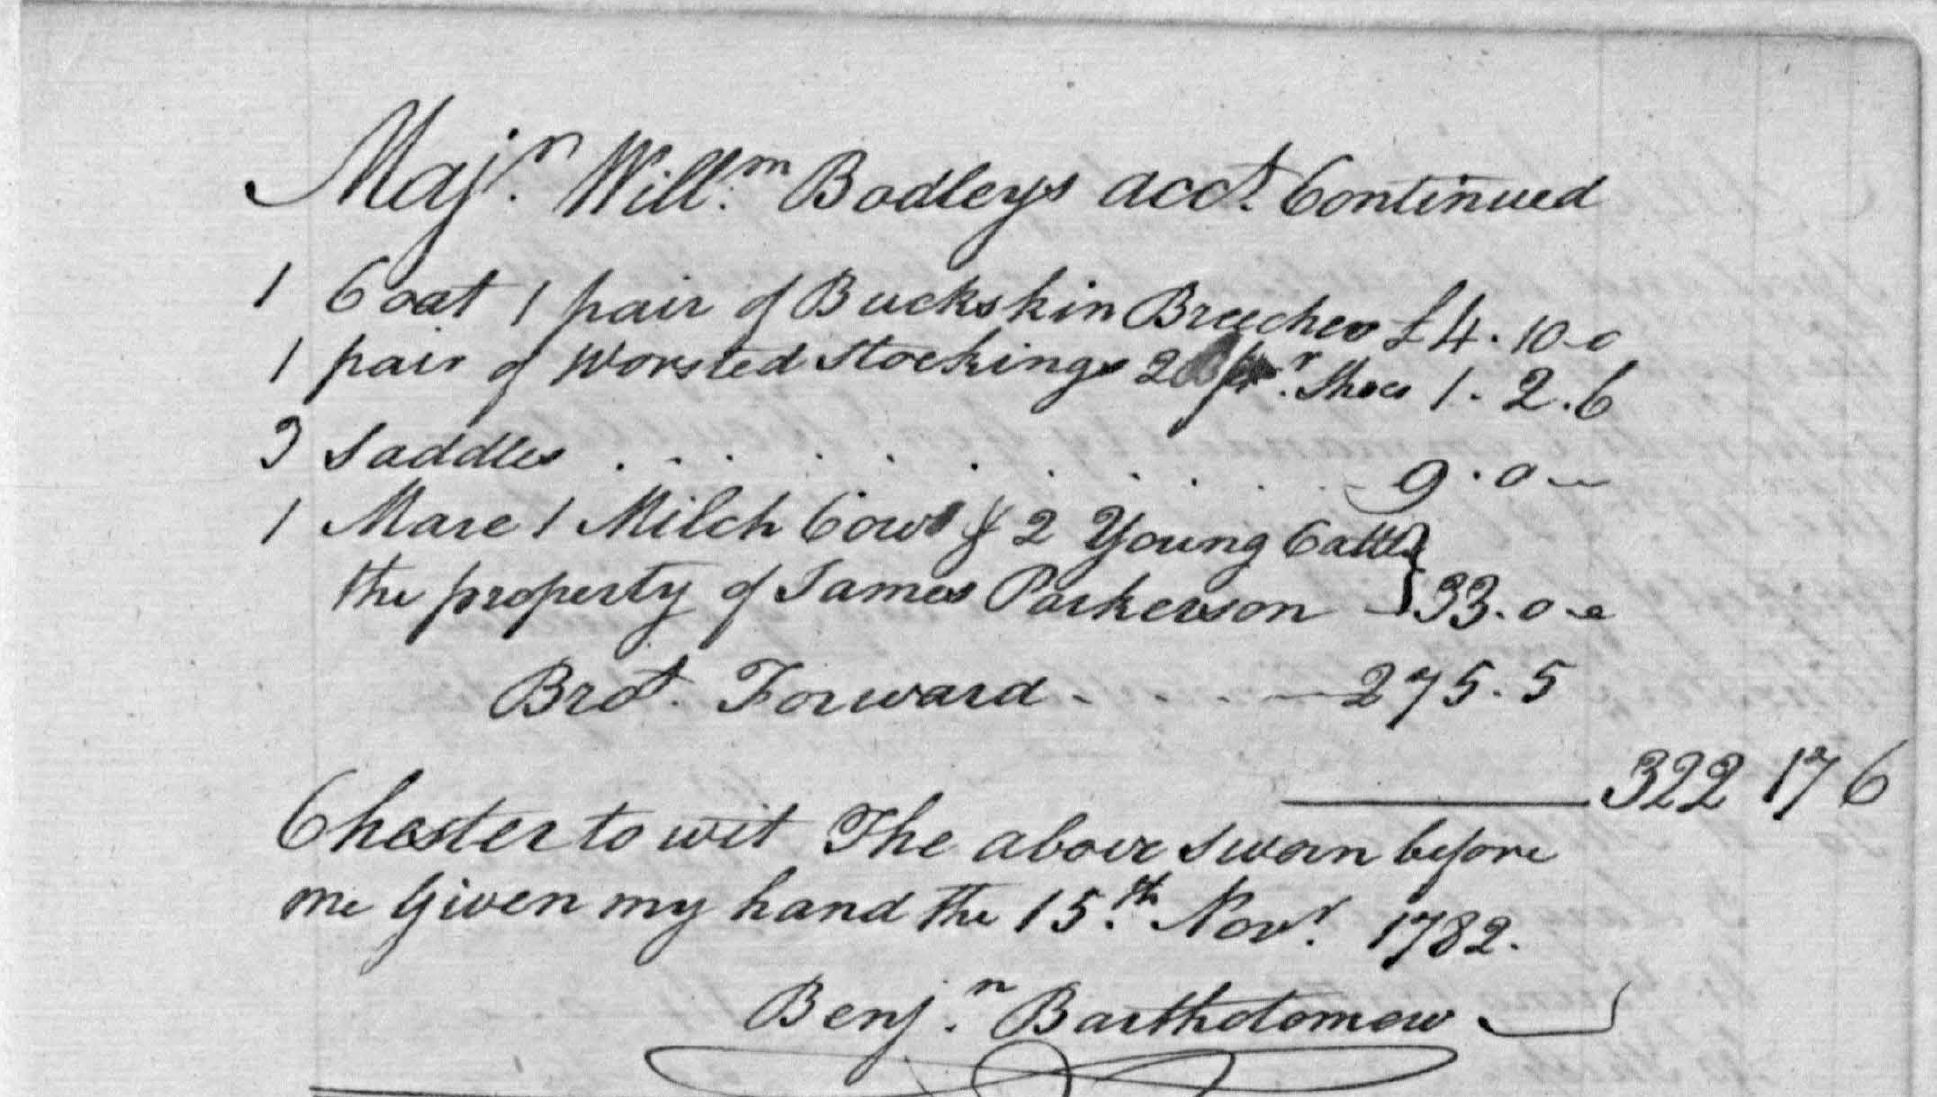 Maj.r Will.m Bodleys acc.t Continued
1 Coat 1 pair of Buckskin Breeches £4.10-0
1 pair of Worsted Stockings 2 pr. Shoes 1.2.6
3 Saddles . . . . . . . . . . 9.0-
1 Mare 1 Milch Cow & 2 Young Cattle
the property of James Parkerson - } 33.0-0
Bro.t Forward - . . . - 275.5
322 17 6
Chester to wit The above sworn before
me Given my hand the 15.th Nov.r 1782.
Benj.n Bartholomew